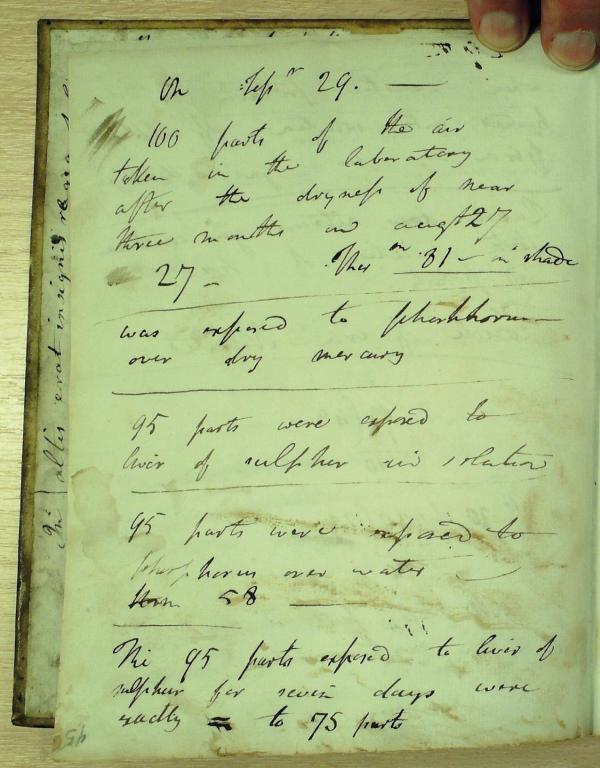 On Sepr 29. —
100 parts of the air
taken in the laboratory
after the dryness of near
three months on augst 27
27 – Ther m 81 – in shade
was exposed to phosphorus
over dry mercury
95 parts were exposed to
liver of sulphur in solution
95 parts were exposed to
phosphorus over water
58 —
The 95 parts exposed to liver of
sulphur for seven days were
exactly = to 75 parts